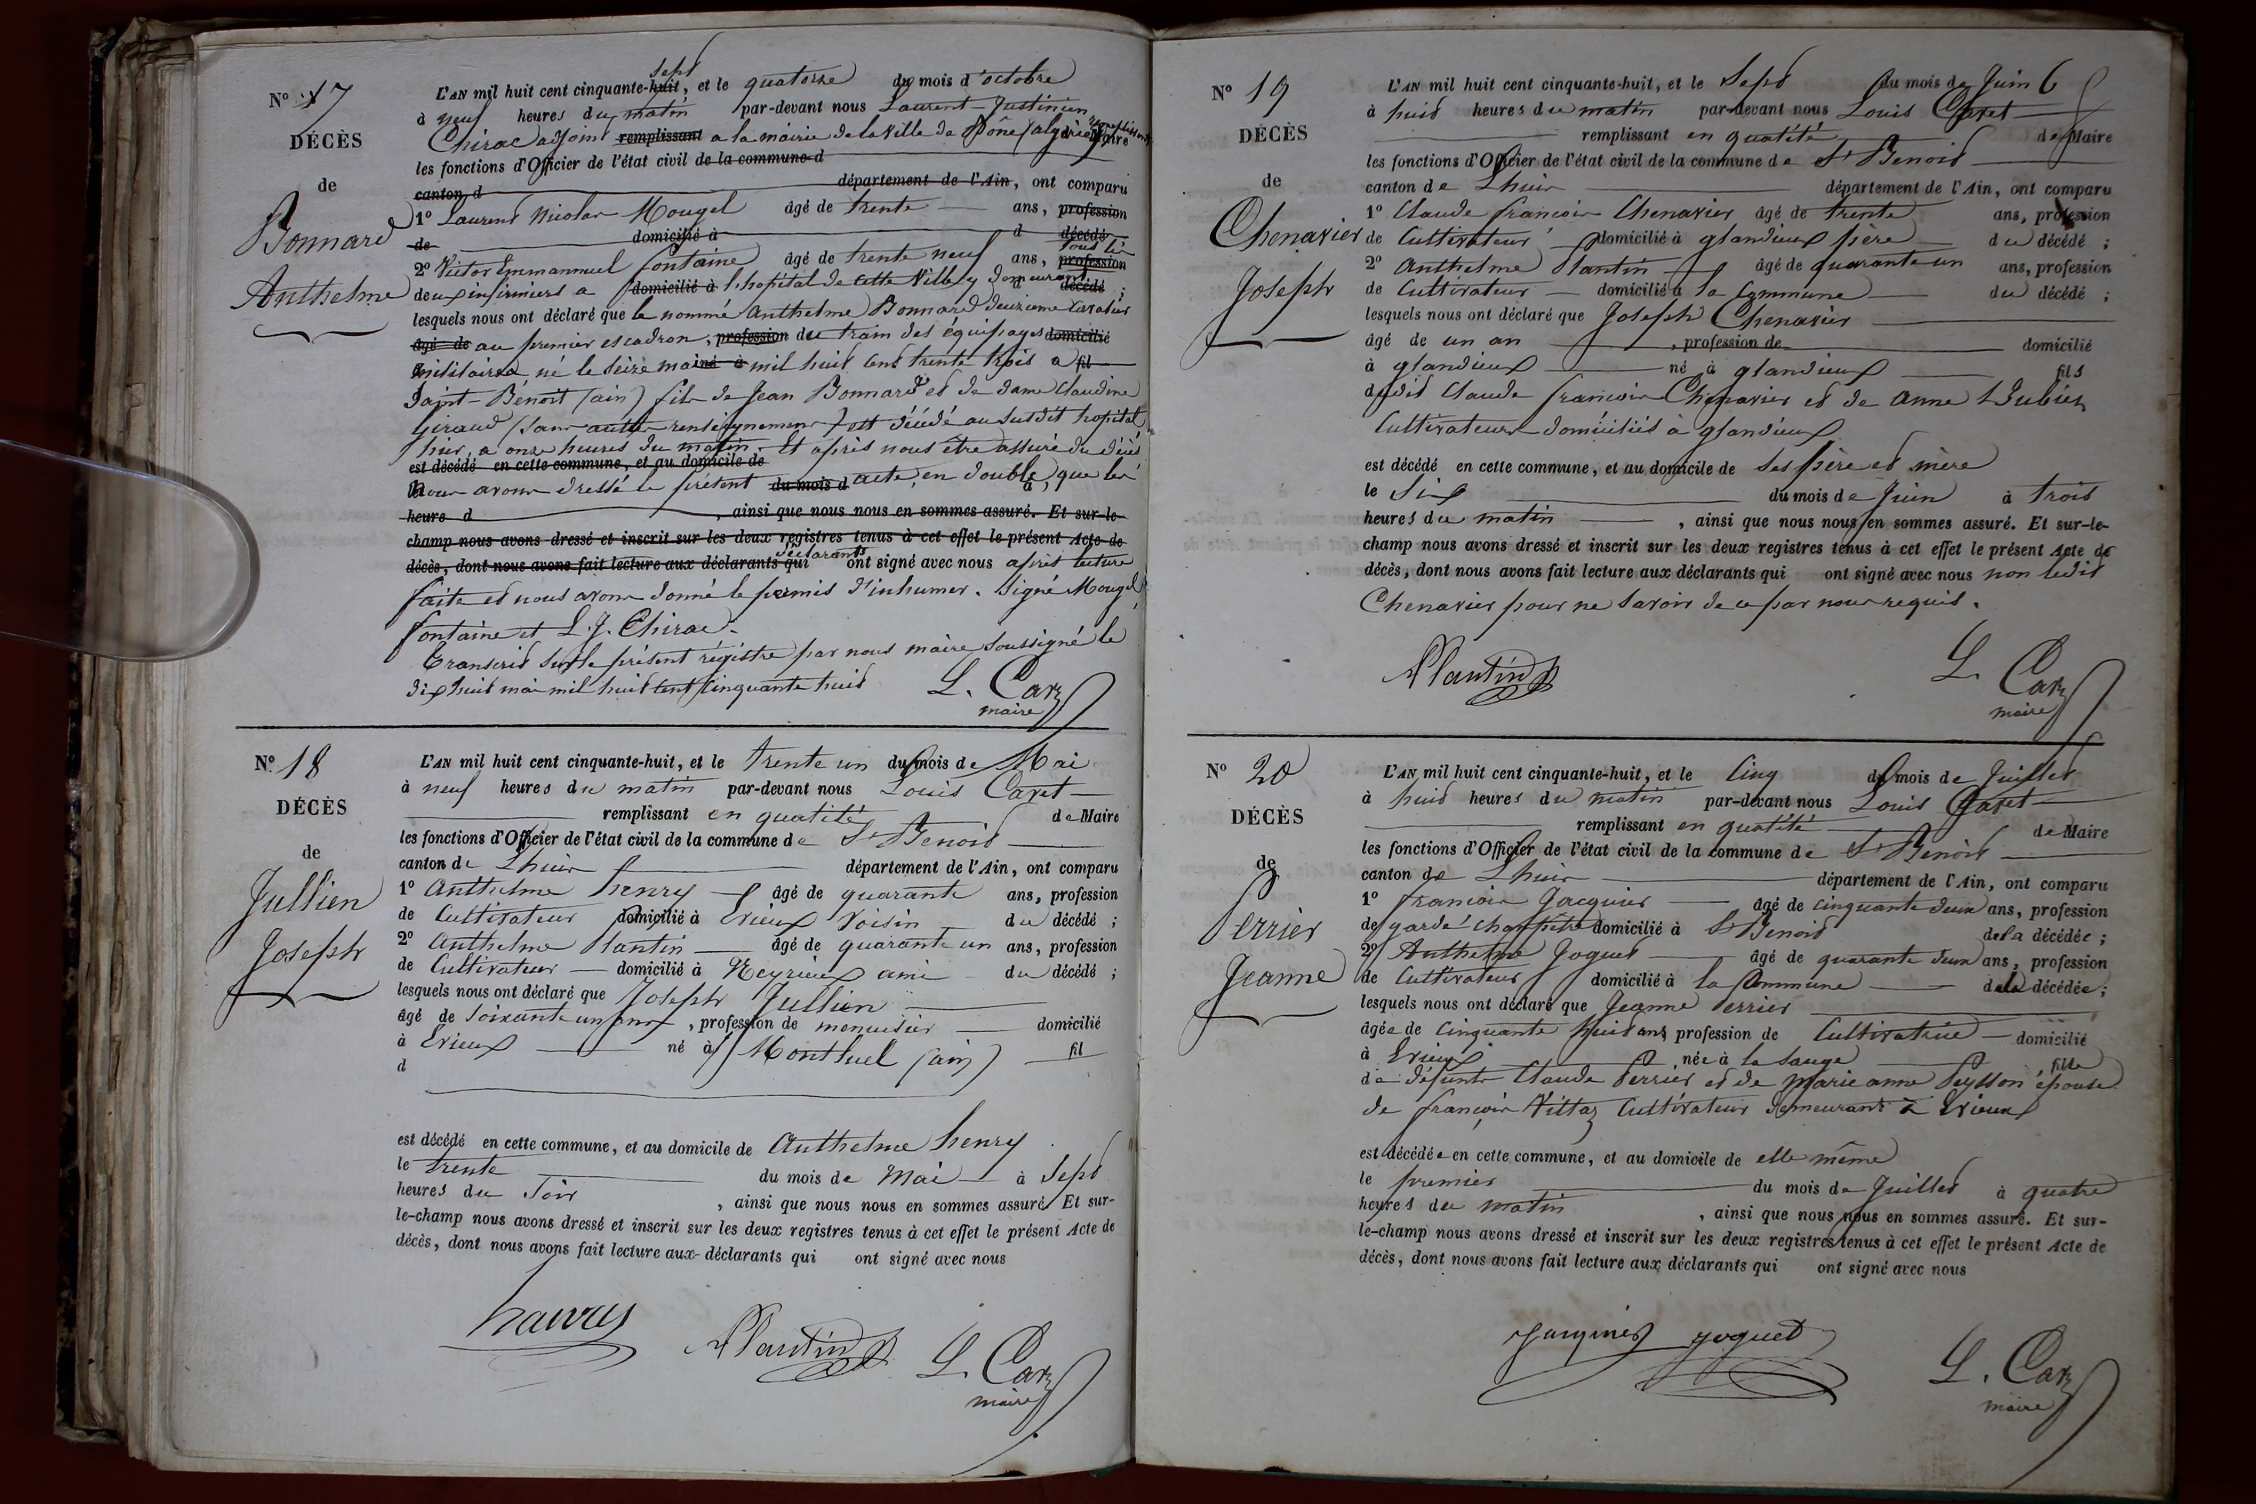 Nº 17
DÉCÈS
de
Bonnard
Anthelme
L'AN mil huit cent cinquante-huit sept, et le quatorze du mois d'octobre
à neuf heures du matin par-devant nous Laurent-Justinien
Chirac adjoint remplissant a la mairie de la ville de Bône (algérie)
les fonctions d'Officier de l'état civil de la commune d
canton d département de l'Ain, ont comparu
1º Laurent Nicolas Mougel âgé de trente ans, profession
de domicilié à d décédé
2º Victor Emmanmuel fontaine âgé de trente neuf ans, profession tous les
deux infirmiers a domicilié à l'hopital de cette Ville y demeurant d décédé ;
lesquels nous ont déclaré que le nommé Anthelme Bonnard deuxième cavalier
âgé de au premier escadron, profession du train des équipages domicilié
militaires, né le seize mai né à mil huit cent trente trois a fil
Saint-Benoit (ain) fils de Jean Bonnard et de dame Claudine
Giraud (sans autre renseignement) est décédé au susdit hopital
hier, a onze heures du matin. Et après nous être assuré du décès
est décédé en cette commune, et au domicile de
Nous avons dressé le présent du mois d acte, en double, à que les
heure d , ainsi que nous nous en sommes assuré. Et sur-le-
champ nous avons dressé et inscrit sur les deux registres tenus à cet effet le présent Acte de
décès, dont nous avons fait lecture aux déclarants qui déclarants ont signé avec nous après lecture
faite et nous avons donné le permis d'inhumer. Signé Mougel,
fontaine et L. J. Chirac.
Transcrit sur le présent régistre par nous maire soussigné le
dix huit mai mil huit cent cinquante huit
L. Caret
maire
Nº 18
DÉCÈS
de
Jullien
Joseph
L'AN mil huit cent cinquante-huit, et le trente un du mois de Mai
à neuf heures du matin par-devant nous Louis Caret
remplissant en qualité de Maire
les fonctions d'Officier de l'état civil de la commune de St Benoit
canton de Lhuis département de l'Ain, ont comparu
1º Anthelme henry âgé de quarante ans, profession
de Cultivateur domicilié à Evieux voisin du décédé ;
2º Anthelme Plantin âgé de quarante un ans, profession
de Cultivateur domicilié à Neyrieux ami du décédé ;
lesquels nous ont déclaré que Joseph Jullien
âgé de soixante un ans, profession de menuisier domicilié
à Evieux né à Montluel (ain) fil
d
est décédé en cette commune, et au domicile de Anthelme henry
le trente du mois de Mai à Sept
heures du Soir , ainsi que nous nous en sommes assuré Et sur-
le-champ nous avons dressé et inscrit sur les deux registres tenus à cet effet le présent Acte de
décès, dont nous avons fait lecture aux déclarants qui ont signé avec nous
Plantin
L. Caret
maire
Nº 19
DÉCÈS
de
Chenavier
Joseph
L'AN mil huit cent cinquante-huit, et le Sept du mois de Juin
à huit heures du matin par-devant nous Louis Caret
remplissant en qualité de Maire
les fonctions d'Officier de l'état civil de la commune de St Benoit
canton de Lhuis département de l'Ain, ont comparu
1º Claude françois Chenavier âgé de trente ans, profession
de Cultivateur domicilié à glandieux père du décédé ;
2º Anthelme Plantin âgé de quarante un ans, profession
de Cultivateur domicilié à la Commune du décédé ;
lesquels nous ont déclaré que Joseph Chenavier
âgé de un an , profession de domicilié
à glandieux né à glandieux fils
dudit Claude françois Chenavier et de Anne
Cultivateurs domiciliés à glandieux
est décédé en cette commune, et au domicile de ses père et mère
le Six du mois de Juin à trois
heures du matin , ainsi que nous nous en sommes assuré. Et sur-le-
champ nous avons dressé et inscrit sur les deux registres tenus à cet effet le présent Acte de
décès, dont nous avons fait lecture aux déclarants qui ont signé avec nous non ledit
Chenavier pour ne savoir de ce par nous requis.
Plantin
L. Caret
maire
Nº 20
DÉCÈS
de
Perrier
Jeanne
L'AN mil huit cent cinquante-huit, et le Cinq du mois de Juillet
à huit heures du matin par-devant nous Louis Caret
remplissant en qualité de Maire
les fonctions d'Officier de l'état civil de la commune de St Benoit
canton de Lhuis département de l'Ain, ont comparu
1º françois Jacquier âgé de cinquante deux ans, profession
de garde champêtre domicilié à St Benoit de la décédée ;
2º Anthelme Joguet âgé de quarante deux ans, profession
de Cultivateur domicilié à la Commune de la décédée ;
lesquels nous ont déclaré que Jeanne Perrier
âgée de cinquante huit ans, profession de Cultivatrice domicilié
à Evieux née à la Sauge fille
de défunts Claude Perrier et de Marie anne Peysson épouse
de françois Vittoz Cultivateur demeurant à Evieux
est décédée en cette commune, et au domicile de elle même
le premier du mois de Juillet à quatre
heures du matin , ainsi que nous nous en sommes assuré. Et sur-
le-champ nous avons dressé et inscrit sur les deux registres tenus à cet effet le présent Acte de
décès, dont nous avons fait lecture aux déclarants qui ont signé avec nous
Jacquier joguet
L. Caret
maire